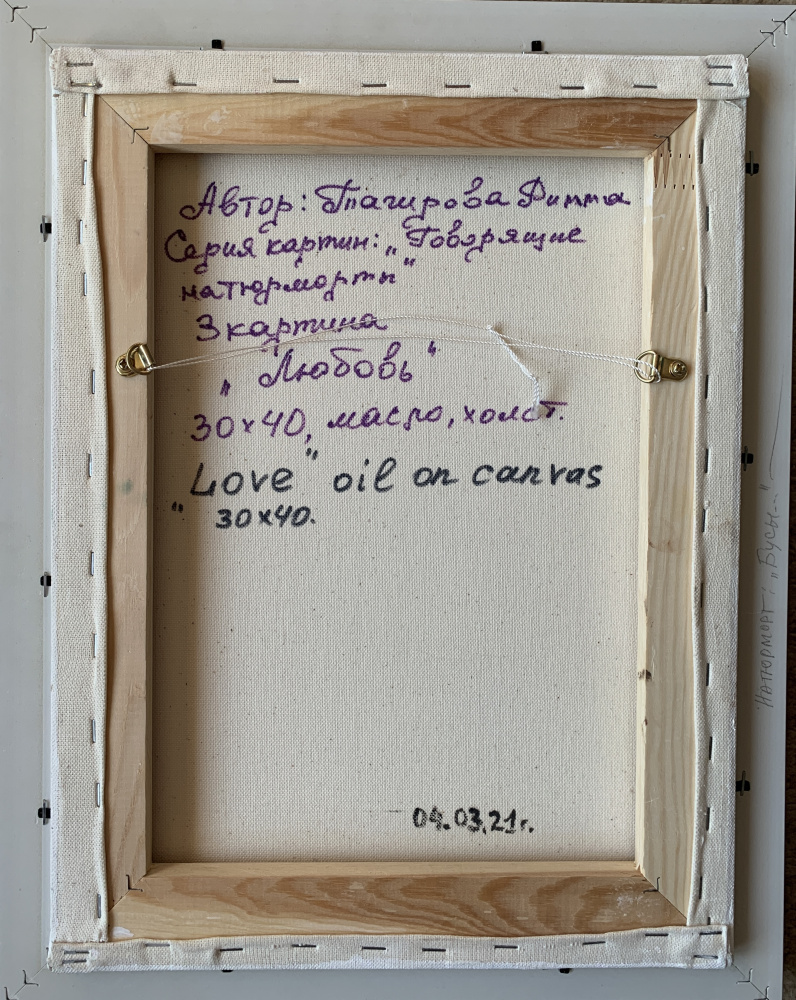 Автор: Тагирова Римма
Серия картин: „Говорящие
натюрморты"
3 картина
„Любовь"
30х40, масло, холст.
„Love" oil on canvas
30х40.
04.03.21г.
Натюрморт: „Бусы..."